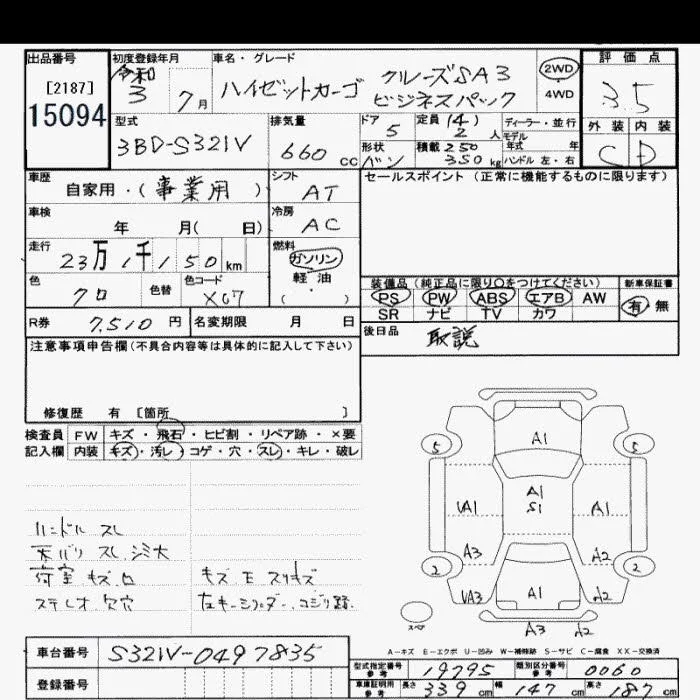 出品番号
[2187]
15094
初度登録年月
令和
3 7月
車名・グレード
ハイゼットカーゴ クルーズSA3
ビジネスパック
2WD
4WD
評価点
3.5
外装 内装
C D
型式
3BD-S321V
排気量
660 CC
ドア
5
形状
バン
定員 (4)
2 人
積載 250
350 kg
ディーラー・並行
モデル
年式 年
ハンドル 左・右
車歴
自家用・(事業用)
シフト
AT
車検
年 月( 日)
冷房
AC
走行
23万1千150km
燃料
ガソリン
軽油
(・)
色
クロ
色替
色コード
X07
R券 7,510円
名変期限 月 日
セールスポイント(正常に機能するものに限ります)
装備品(純正品に限り○をつけてください)
PS PW ABS エアB AW
SR ナビ TV カワ
新車保証書
有 無
後日品 取説
注意事項申告欄(不具合内容等は具体的に記入して下さい)
修復歴 有 [箇所 ]
検査員
記入欄
FW キズ・飛石・ヒビ割・リペア跡・×要
内装 キズ・汚レ・コゲ・穴・スレ・キレ・破レ
ハンドル スレ
天バリ スレ シミ大
荷室 キズ 凹
ステレオ 欠穴
キズ E スリキズ
右キーシリンダー コジリ跡
A1
5 5
A1
S1
UA1 A1
A3 A2
2 2
UA3 A1 A2
A3 A2
スペア
A-キズ E-エクボ U-凹み W-補修跡 S-サビ C-腐食 XX-交換済
車台番号 S321V-0497835
登録番号
型式指定番号
参考
19795
類別区分番号
参考
0060
車庫証明用
参考
長さ 339cm 幅 147cm 高さ 187cm